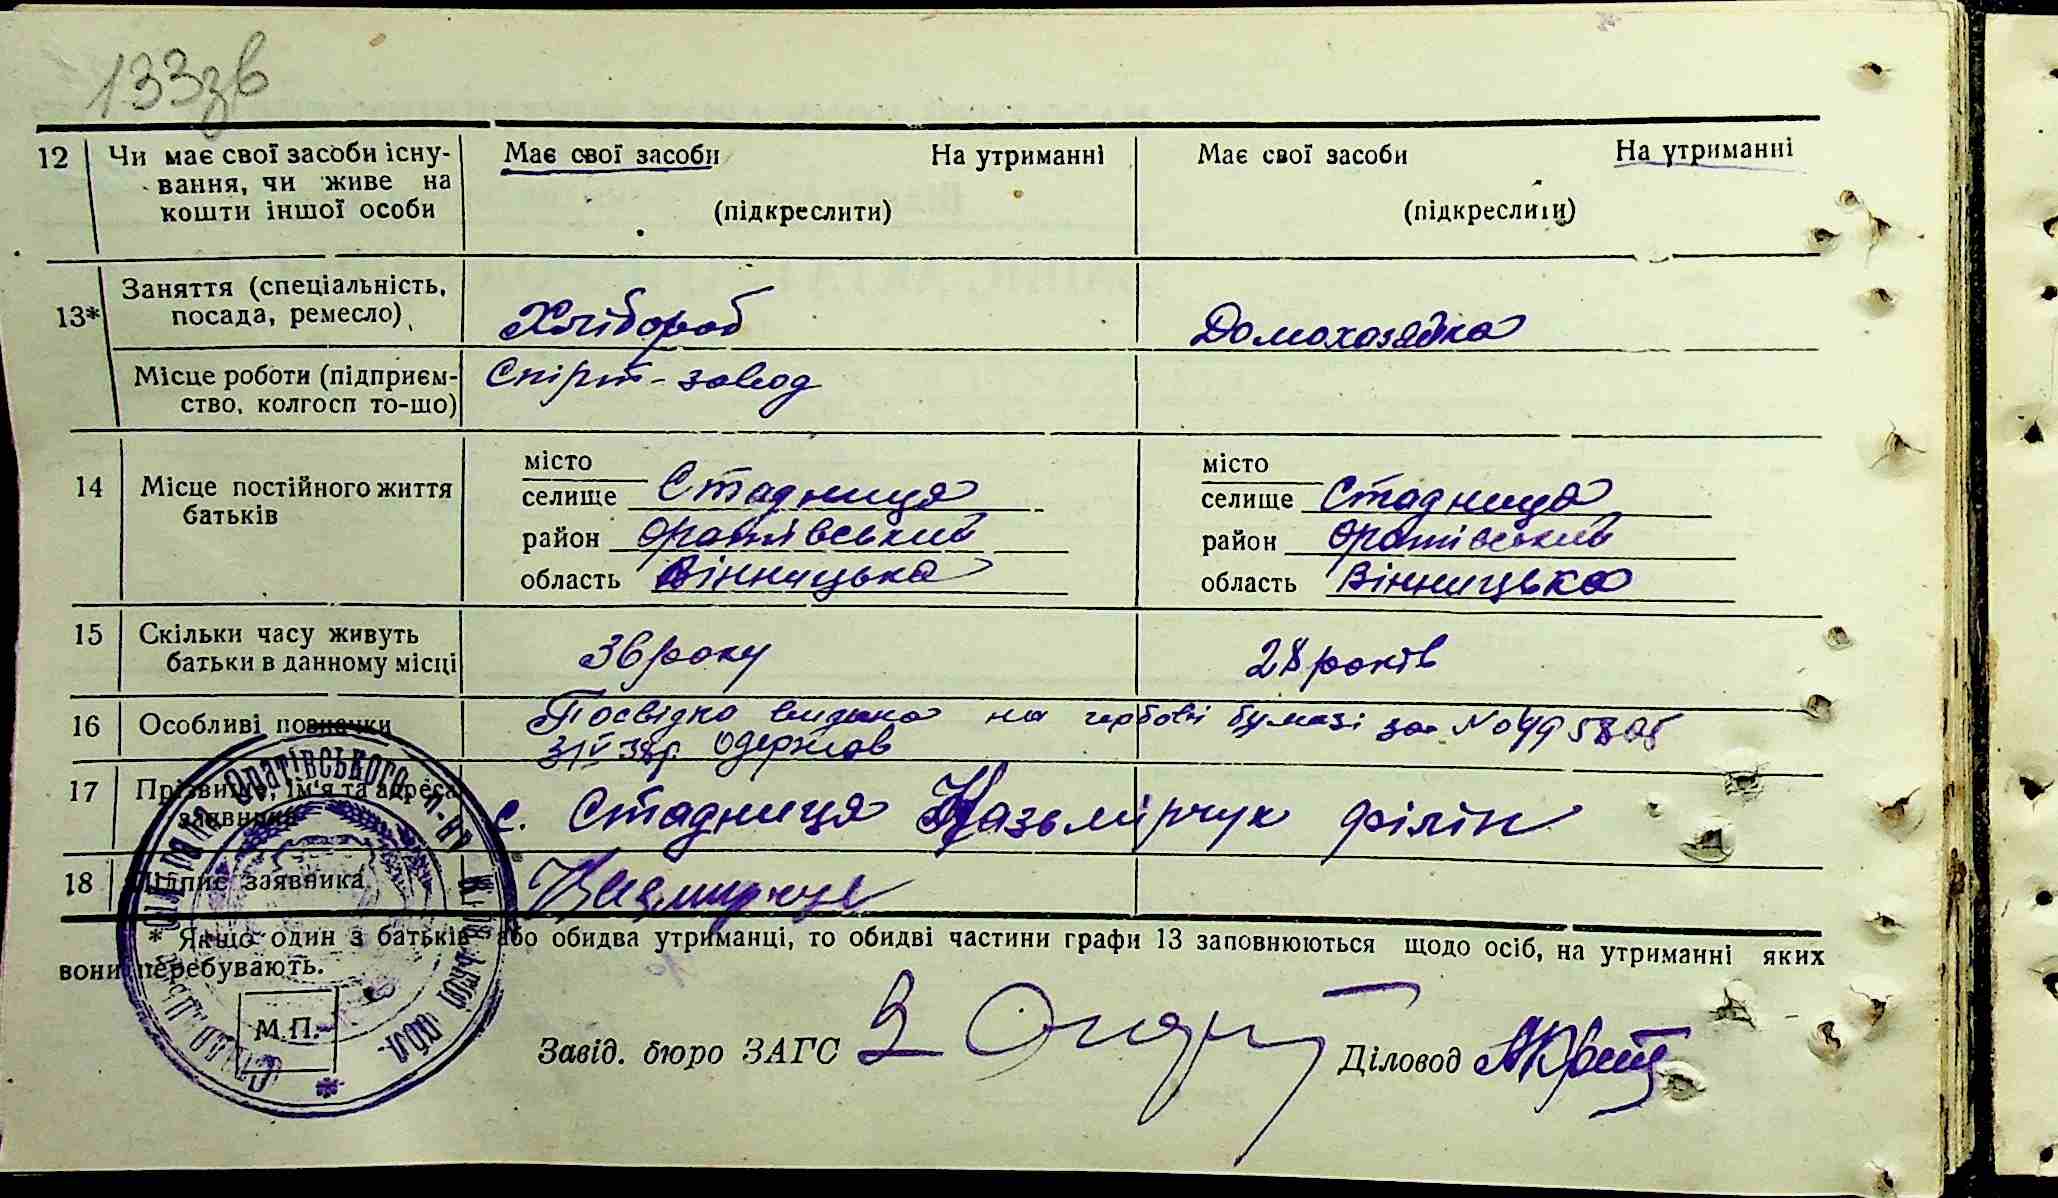 133зв
12 Чи має свої засоби існу-
вання, чи живе на
кошти іншої особи
Має свої засоби На утриманні
(підкреслити)
Має свої засоби На утриманні
(підкреслити)
13* Заняття (спеціальність,
посада, ремесло)
Хлібороб
Домохазяйка
Місце роботи (підприєм-
ство, колгосп то-що)
Спірт-завод
14 Місце постійного життя
батьків
місто
селище Стадниця
район Оратівський
область Вінницька
місто
селище Стадниця
район Оратівський
область Вінницька
15 Скільки часу живуть
батьки в данному місці
36 року
28 років
16 Особливі позначки
Посвідка видана на гербові бумазі за №
31 V 38р. Одержав
17 Прізвище, ім'я та адреса
заявника
с. Стадниця Казьмірчук Філін
18 Підпис заявника
* Якщо один з батьків або обидва утриманці, то обидві частини графи 13 заповнюються щодо осіб, на утриманні яких
вони перебувають.
М.П.
Оратівського р-ну
обл.
Завід. бюро ЗАГС
Діловод